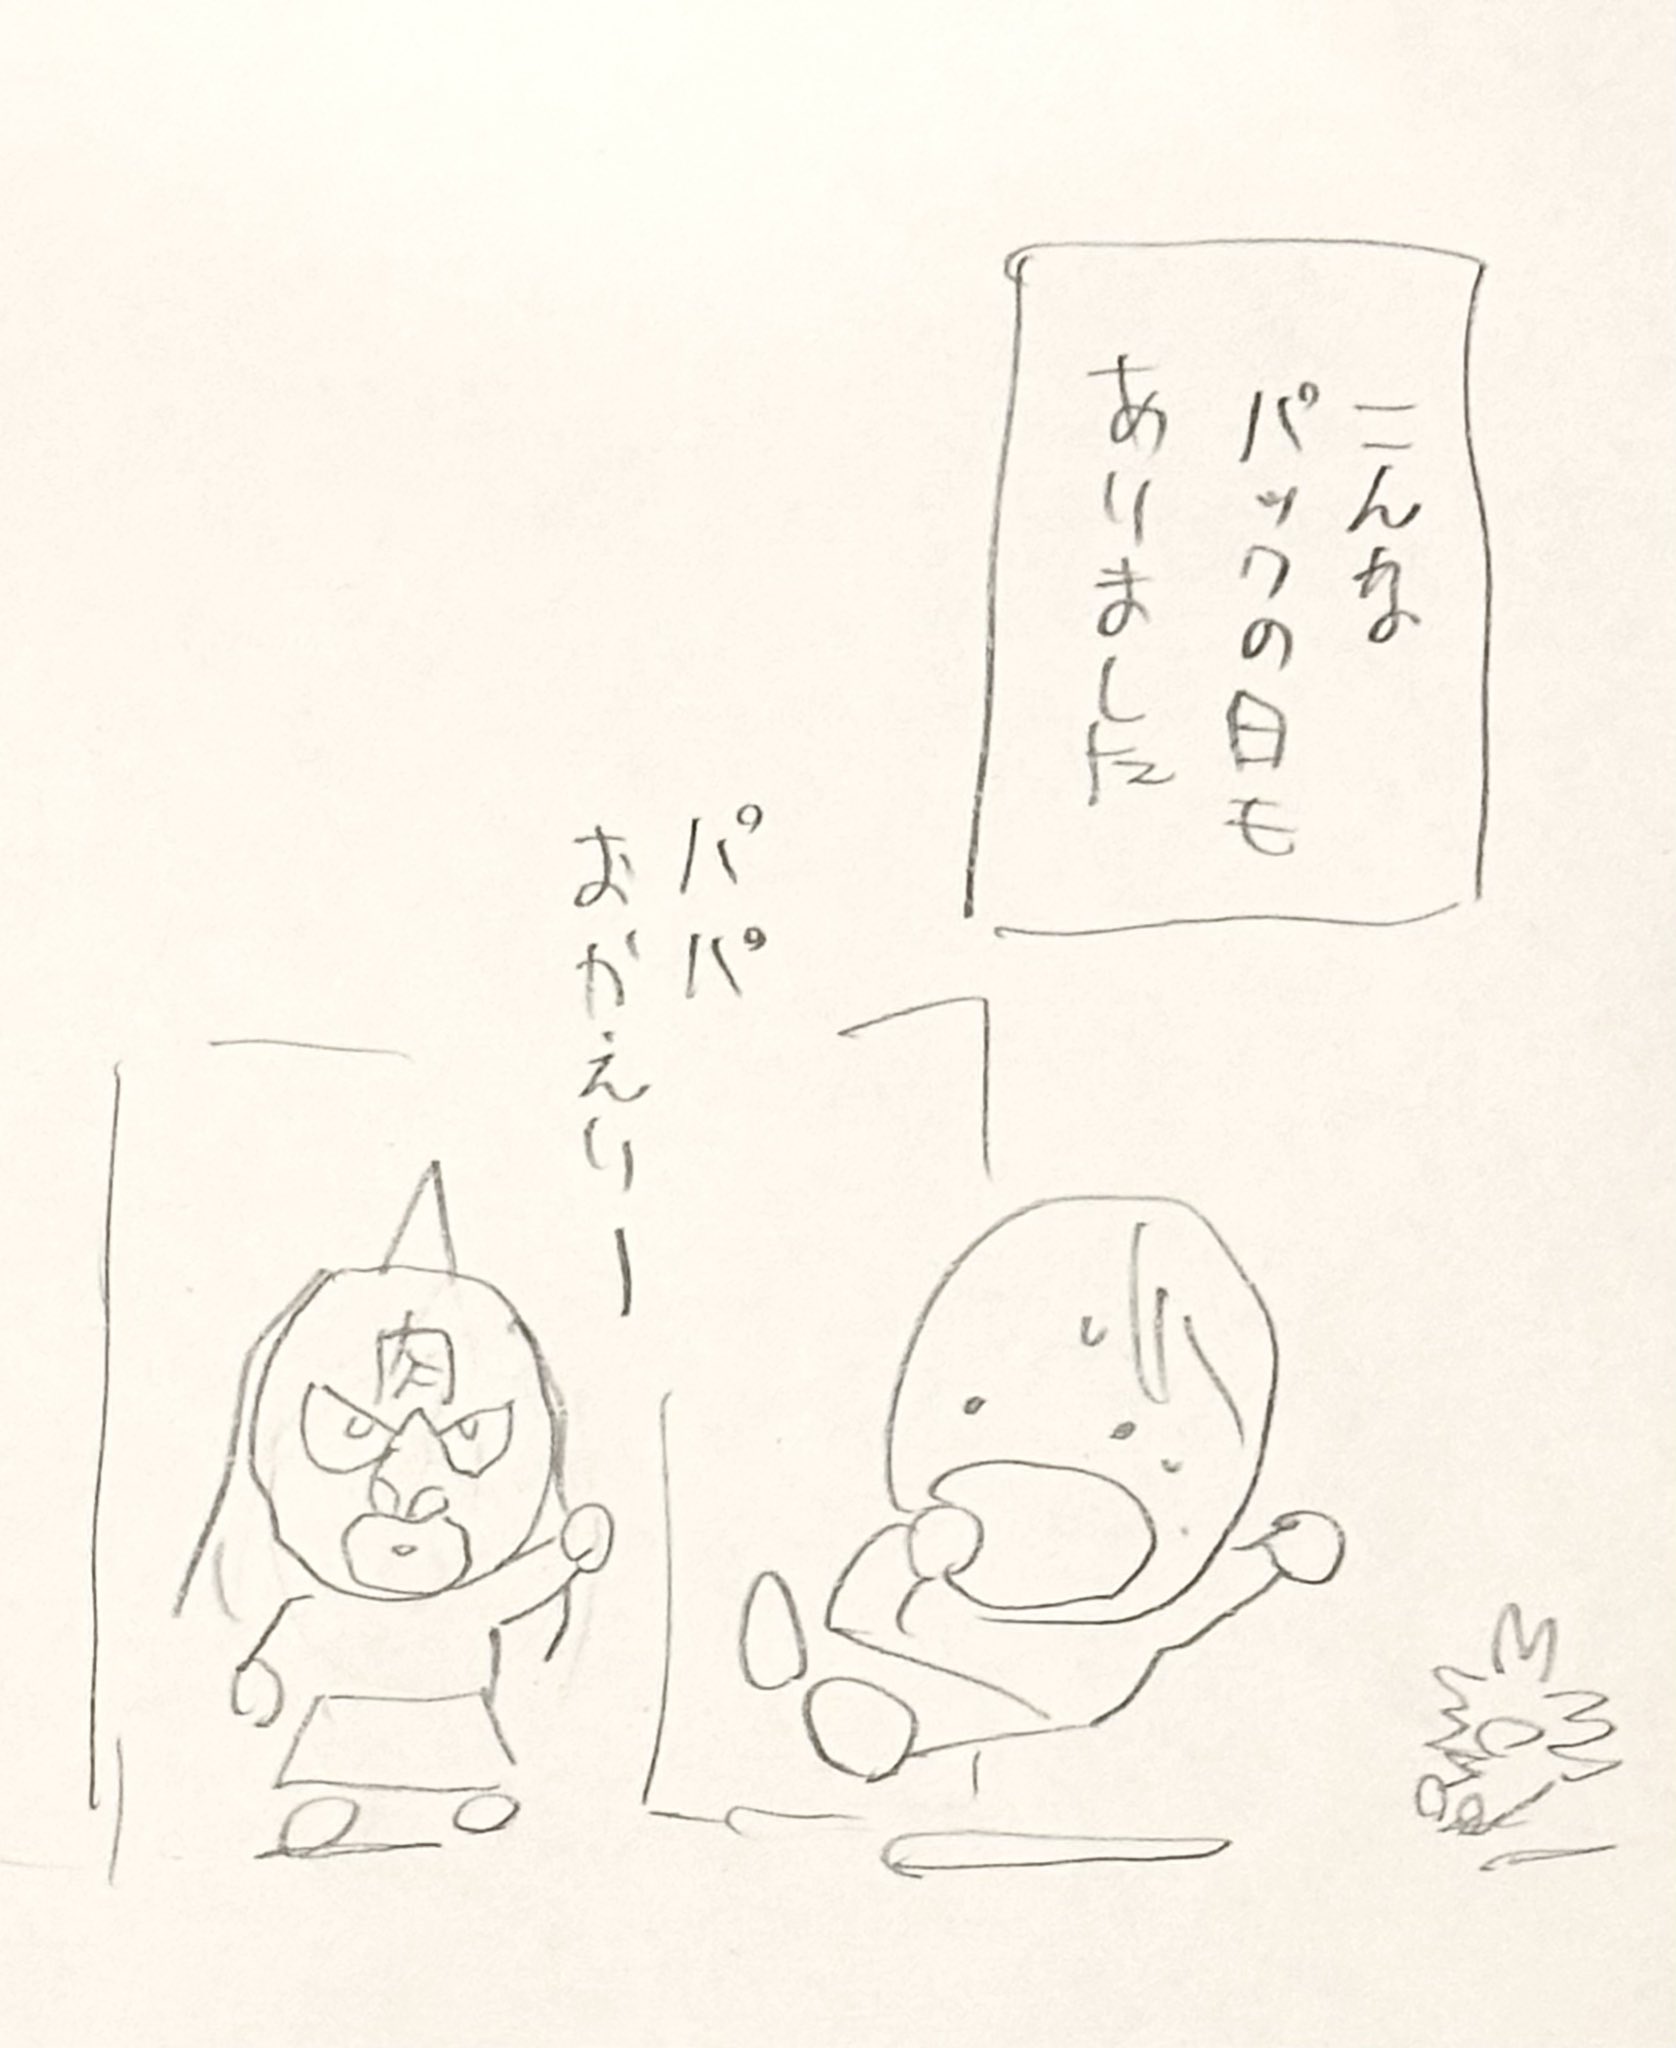 こんな
パックの日も
ありました
パパ
おかえりー
肉